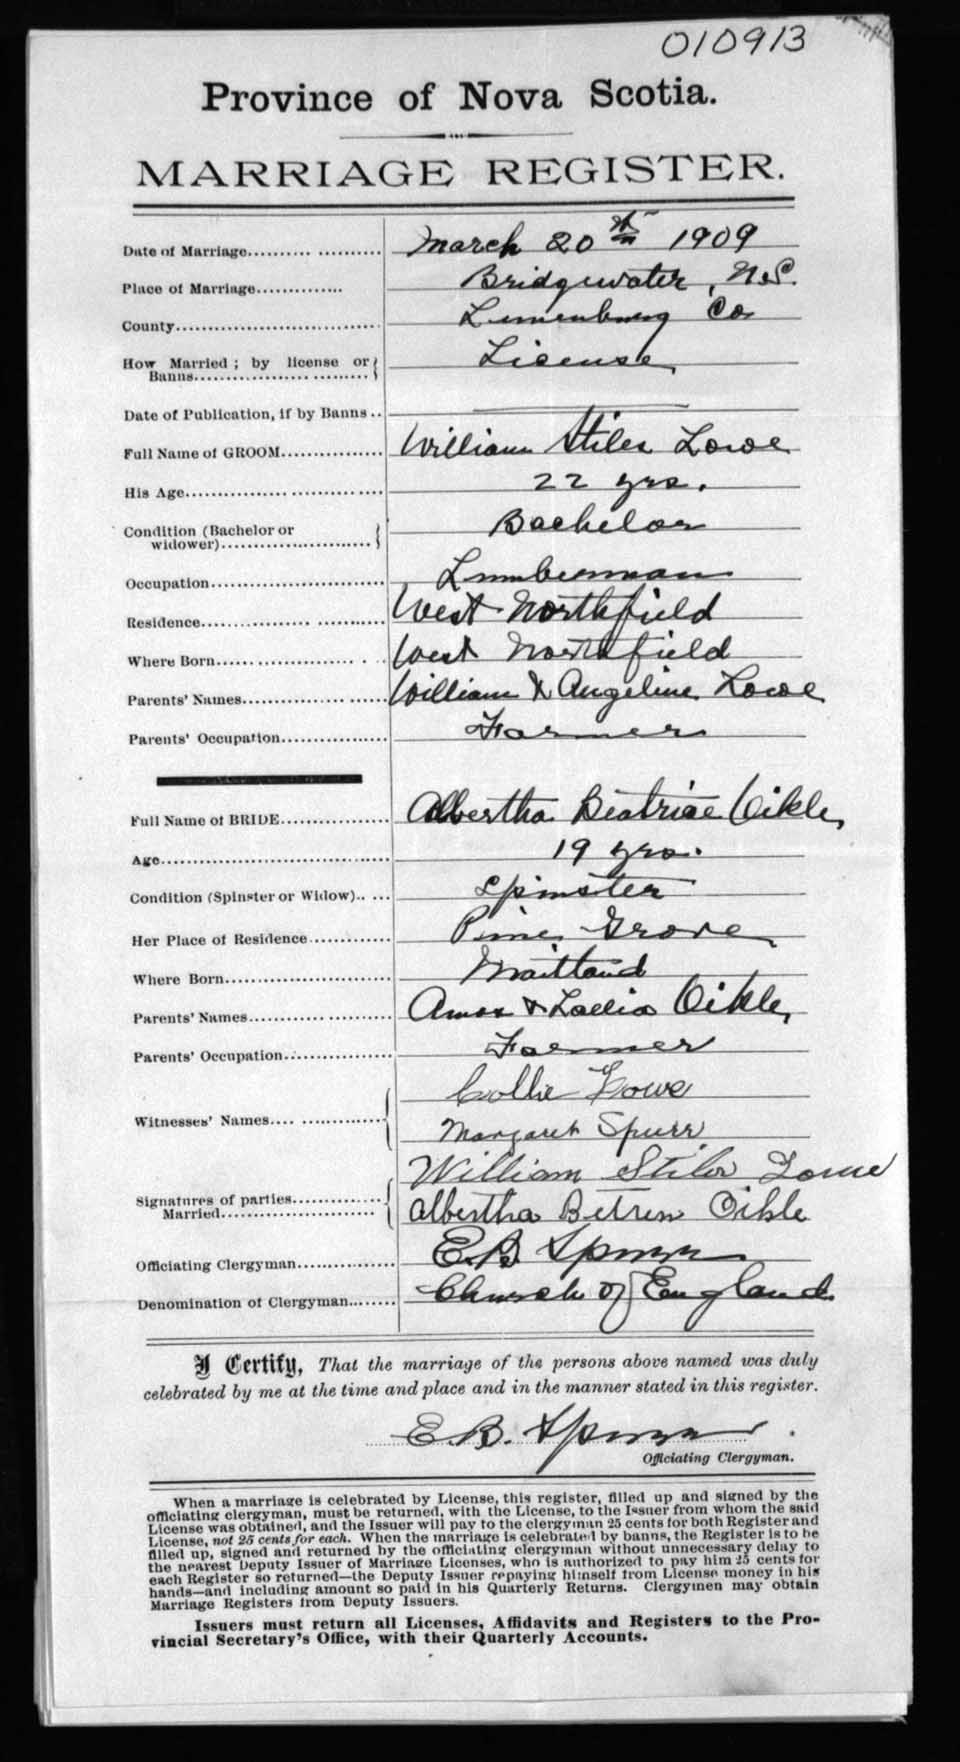 010913
Province of Nova Scotia.
MARRIAGE REGISTER.
Date of Marriage.......... .......... March 20th 1909
Place of Marriage.............. Bridgewater, N.S.
County................................. Lunenburg Co
How Married ; by license or License
Banns................. ..........
Date of Publication, if by Banns ..
Full Name of GROOM................ William Stiles Lowe
His Age................................ 22 yrs.
Condition (Bachelor or Bachelor
widower)........................
Occupation............................ Lumberman
Residence............... ........... West Northfield
Where Born................... . .. West Northfield
Parents' Names.............. ...... William & Angeline Lowe
Parents' Occupation................. Farmer
Full Name of BRIDE................ Albertha Beatrice Oikle
Age..................................... 19 yrs.
Condition (Spinster or Widow).. ... Spinster
Her Place of Residence............. Pine Grove
Where Born........................... Maitland
Parents' Names........... ........... Amos & Oikle
Parents' Occupation.................. Farmer
Collie Lowe
Witnesses' Names.... ..............
Margaret Spurr
William Stiles Lowe
Signatures of parties..............
Married........................ Albertha Oikle
Officiating Clergyman............... E.B. 
Denomination of Clergyman........ Church of England
I Certify, That the marriage of the persons above named was duly
celebrated by me at the time and place and in the manner stated in this register.
E.B. 
Officiating Clergyman.
When a marriage is celebrated by License, this register, filled up and signed by the
officiating clergyman, must be returned, with the License, to the Issuer from whom the said
License was obtained, and the Issuer will pay to the clergyman 25 cents for both Register and
License, not 25 cents for each. When the marriage is celebrated by banns, the Register is to be
filled up, signed and returned by the officiating clergyman without unnecessary delay to
the nearest Deputy Issuer of Marriage Licenses, who is authorized to pay him 25 cents for
each Register so returned—the Deputy Issuer repaying himself from License money in his
hands—and including amount so paid in his Quarterly Returns. Clergymen may obtain
Marriage Registers from Deputy Issuers.
Issuers must return all Licenses, Affidavits and Registers to the Pro-
vincial Secretary's Office, with their Quarterly Accounts.